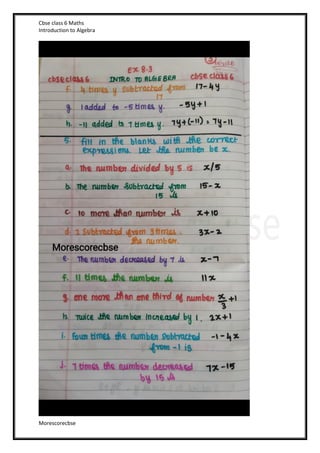 Cbse class 6 Maths
Introduction to Algebra
Ex 8.3
cbse class 6 INTRO TO ALGEBRA cbse class 6
f. 4 times y subtracted from 17 - 4y
17
g. 1 added to -5 times y. -5y+1
h. -11 added to 7 times y. 7y+(-11) = 7y-11
5. fill in the blanks with the correct
expressions. Let the number be x.
a. The number divided by 5 is x/5
b. The number subtracted from 15-x
15 is
c. 10 more than number is x+10
d. 2 subtracted from 3 times 3x-2
the number.
Morescorecbse
e. The number decreased by 7 is x-7
f. 11 times the number is 11x
g. one more than one third of number x/3 +1
h. Twice the number increased by 1. 2x+1
i. Four times the number subtracted -1-4x
from -1 is
j. 7 times the number decreased 7x-15
by 15 is
Morescorecbse